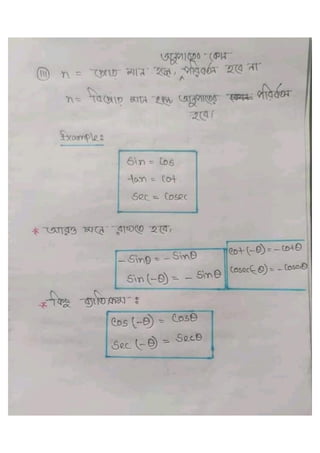 অনুপাতের কোন
(iii) n = জোড় মান হলে, পরিবর্তন হবে না
n = বিজোড় মান হলে অনুপাতের পরিবর্তন
হবে।
Example:
Sin = Cos
tan = Cot
Sec = Cosec
* আরও মনে রাখতে হবে,
- Sinθ = - Sinθ
Sin (-θ) = - Sinθ
Cot (-θ) = - Cotθ
Cosec(-θ) = - Cosecθ
* কিছু ব্যতিক্রম :
Cos (-θ) = Cosθ
Sec (-θ) = Secθ